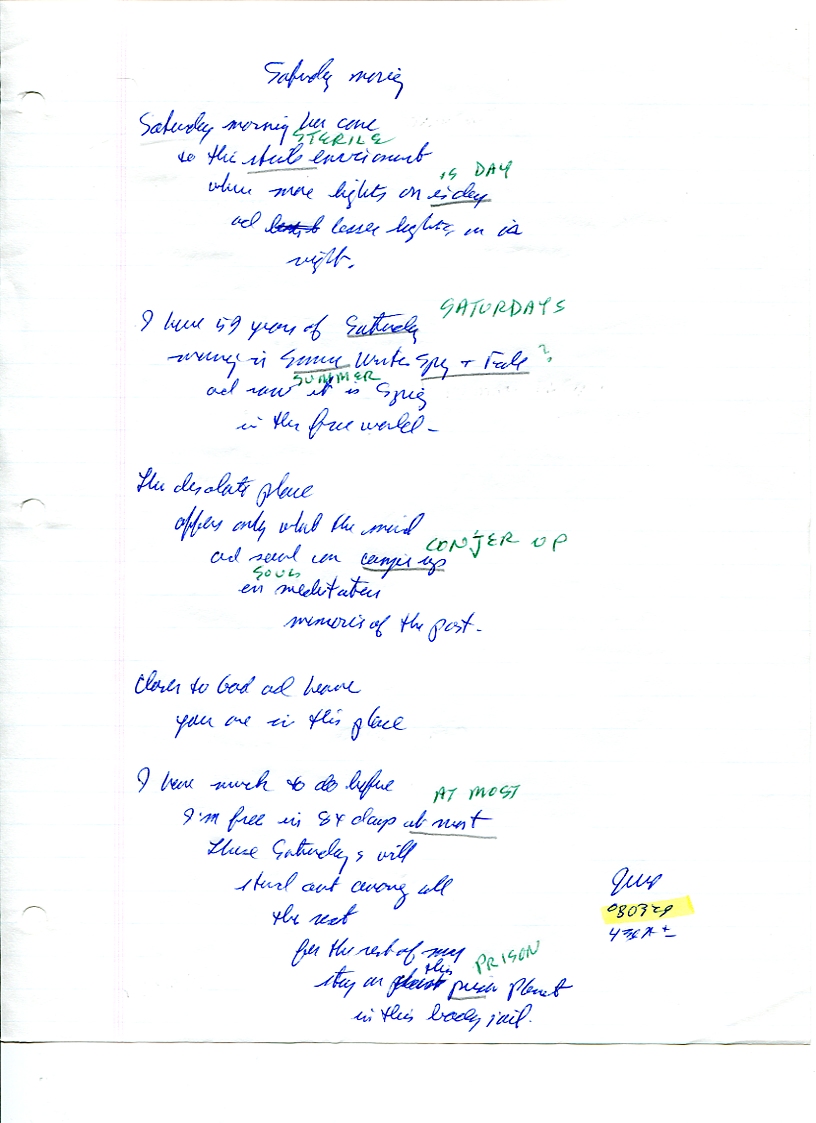 Saturday morning
Saturday morning has come
STERILE
to the sterile enviroment
IS DAY
when more lights on is day
ad lesser lights on is
night.
SATURDAYS
I have 59 years of Saturday
morning in Summer Winter Spg + Fall ?
SUMMER
ad now it is Sprig
in the free world -
The desolate place
offers only what the mind
CONJER UP
ad soul can conjer up
SOUL
in meditation
memories of the past -
Closer to God ad heaven
you are in this place
I have much to do before
AT MOST
I'm free in 84 days at most
These Saturdays will
stand out among all
the rest
for the rest of my
PRISON
stay on this prison planet
in this body jail.
080329